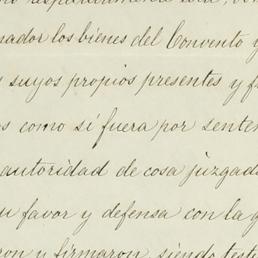 nador los bienes del Convento y
suyos propios presentes y f
os como si fuera por senten
autoridad de cosa juzgada
u favor y defensa con la g
ron y firmaron, siendo testi